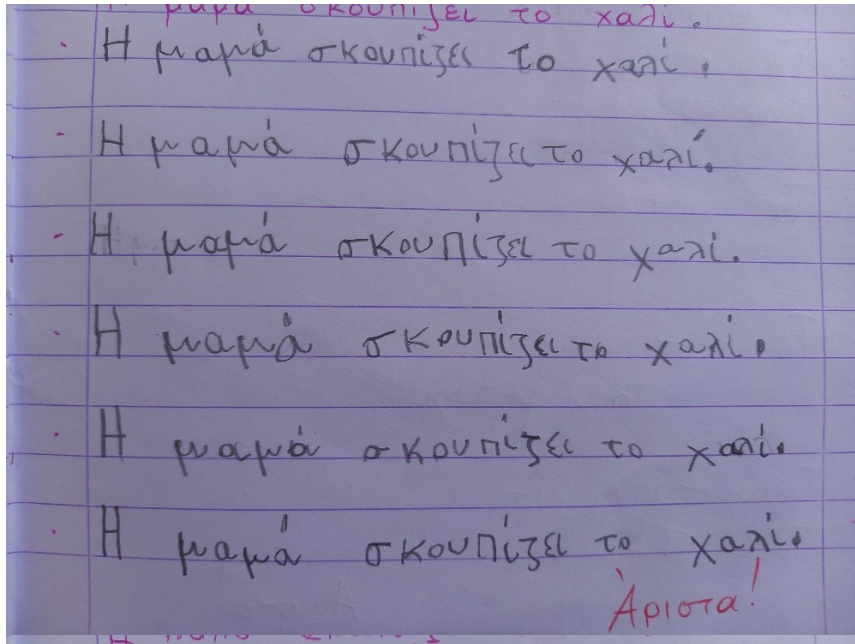 Η μαμά σκουπίζει το χαλί.
Η μαμά σκουπίζει το χαλί.
Η μαμά σκουπίζει το χαλί.
Η μαμά σκουπίζει το χαλί.
Η μαμά σκουπίζει το χαλί.
Η μαμά σκουπίζει το χαλί.
Η μαμά σκουπίζει το χαλί.
Άριστα!